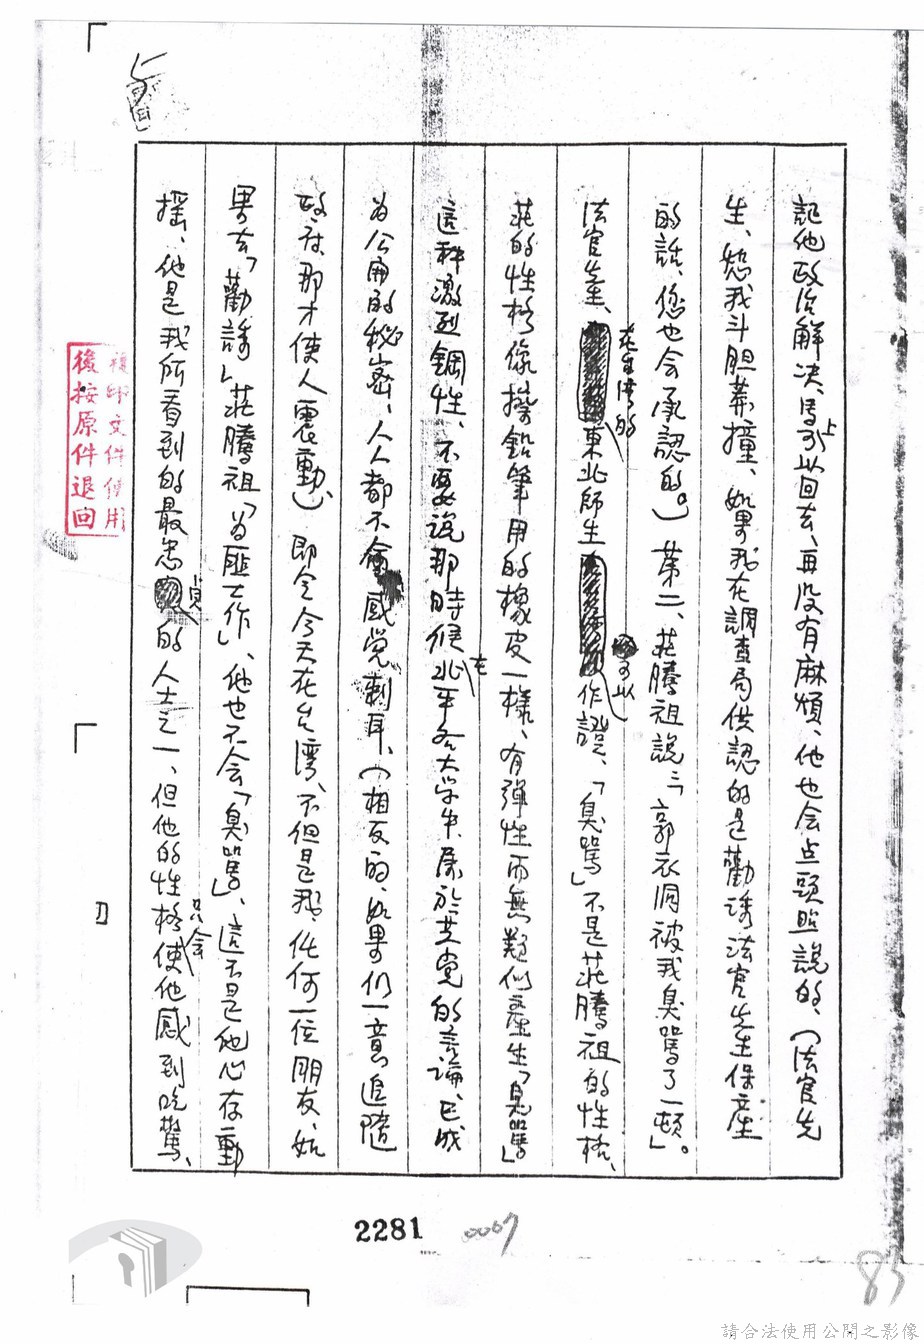 記他政治解決、馬上可以回去、再没有麻煩、他也会点頭照說的、(法官先
生、恕我斗胆莽撞、如果我在調查局供認的是勸誘法官先生保産
的話、您也会承認的。) 第二、莊騰祖說:「郭衣洞被我臭罵了一頓」。
法官先生、在台灣的東北師生可以作證、「臭罵」不是莊騰祖的性格、
莊的性格像擦鉛筆用的橡皮一樣、有彈性而無類似産生「臭罵」
這种激烈鋼性、不要說那時候在北平各大学中、屬於共党的言論、已成
为公開的秘密、人人都不會感覚刺耳、(相反的、如果仍一意追隨
政府、那才使人震動)、即令今天在台湾、不但是我、任何一位朋友、如
果去「勸誘」莊騰祖「为匪工作」、他也不会「臭罵」、這不是他心存動
摇、他是我所看到的最忠貞的人士之一、但他的性格只会使他感到吃驚、
複印文件使用
後按原件退回
2281
0067
83
請合法使用公開之影像